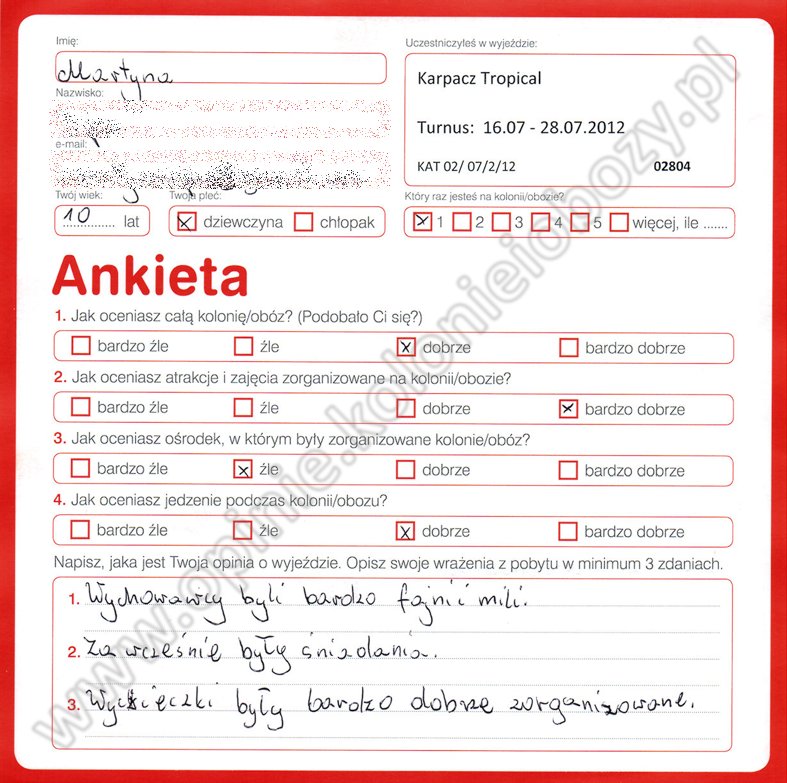 Imię:
Martyna
Nazwisko:
e-mail:
Twój wiek:
10 lat
Twoja płeć:
dziewczyna chłopak
Uczestniczyłeś w wyjeździe:
Karpacz Tropical
Turnus: 16.07 - 28.07.2012
KAT 02/ 07/2/12 02804
Który raz jesteś na kolonii/obozie?
1 2 3 4 5 więcej, ile .......
Ankieta
1. Jak oceniasz całą kolonię/obóz? (Podobało Ci się?)
bardzo źle źle dobrze bardzo dobrze
2. Jak oceniasz atrakcje i zajęcia zorganizowane na kolonii/obozie?
bardzo źle źle dobrze bardzo dobrze
3. Jak oceniasz ośrodek, w którym były zorganizowane kolonie/obóz?
bardzo źle źle dobrze bardzo dobrze
4. Jak oceniasz jedzenie podczas kolonii/obozu?
bardzo źle źle dobrze bardzo dobrze
Napisz, jaka jest Twoja opinia o wyjeździe. Opisz swoje wrażenia z pobytu w minimum 3 zdaniach.
1. Wychowawcy byli bardzo fajni i mili.
2. Za wcześnie były śniadania.
3. Wycieczki były bardzo dobrze zorganizowane.
www.opinie.kolonieiobozy.pl